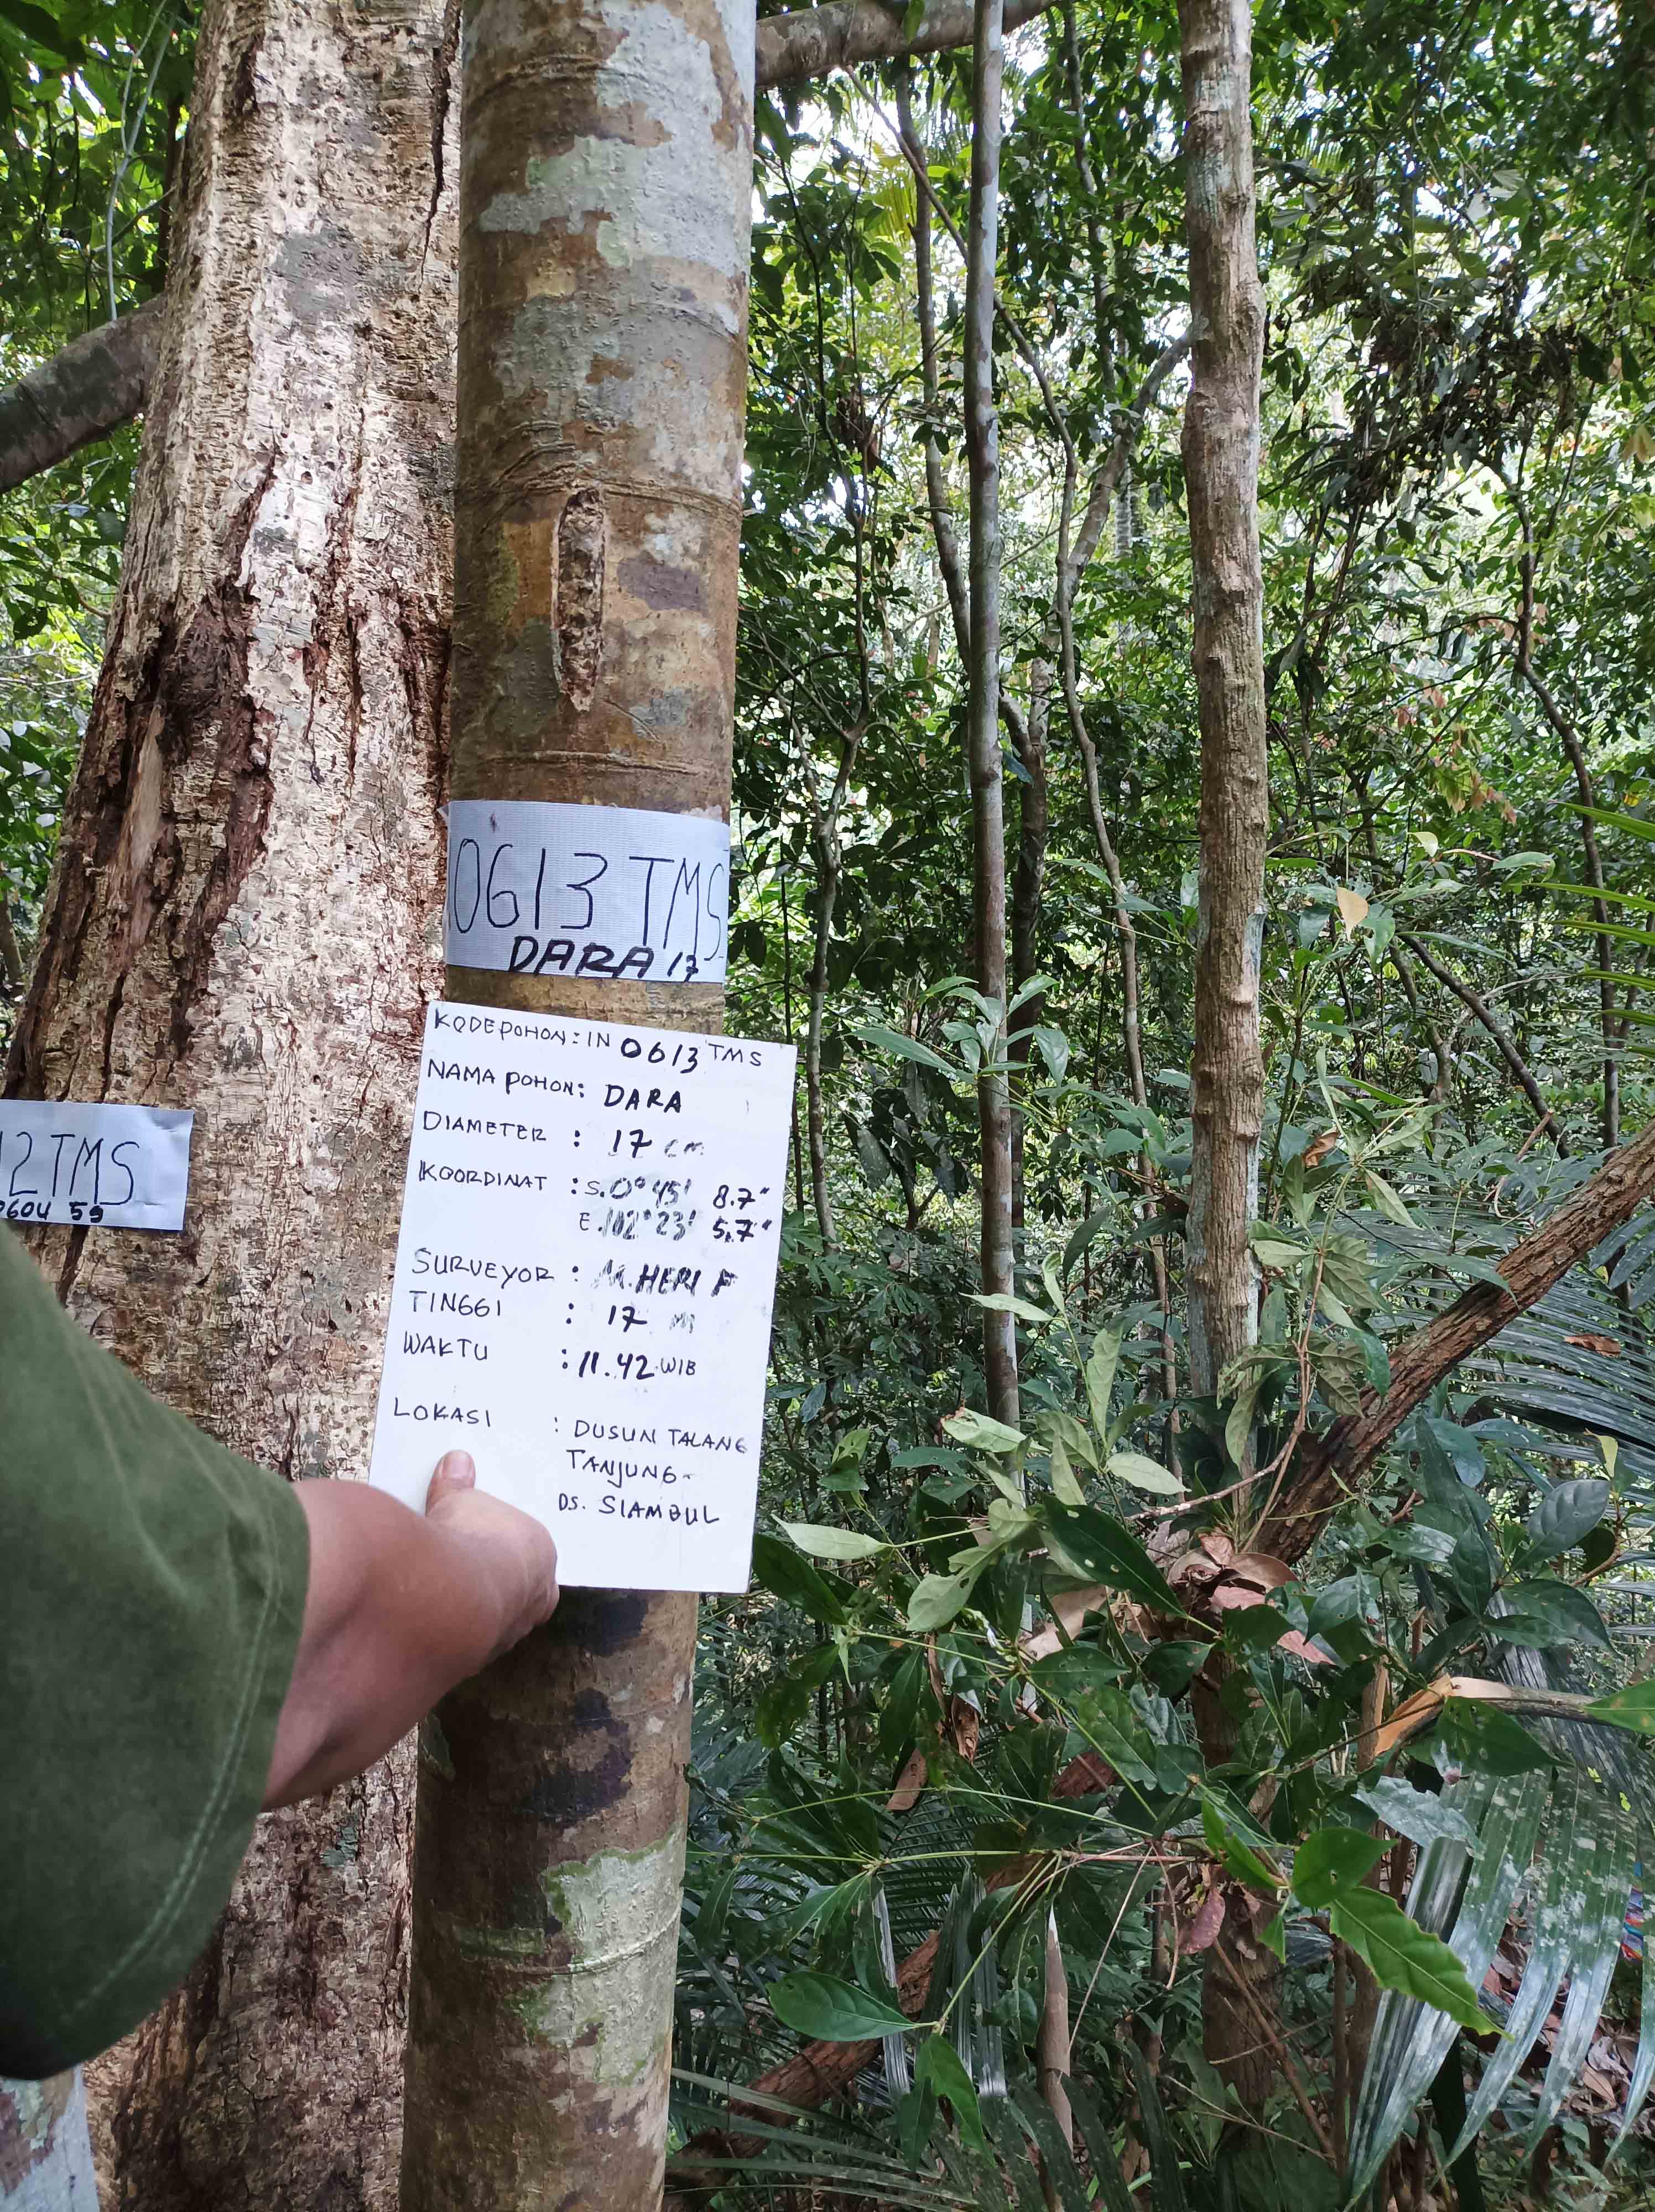 0613 TMS
DARA 17
KODE POHON : IN 0613 TMS
NAMA POHON : DARA
DIAMETER : 17 cm
KOORDINAT : S. 0° 45' 8.7"
E. 102° 23' 5.7"
SURVEYOR : M. HERI F
TINGGI : 17 m
WAKTU : 11.42 WIB
LOKASI : DUSUN TALANG
TANJUNG-
DS. SIAMBUL
12 TMS
59